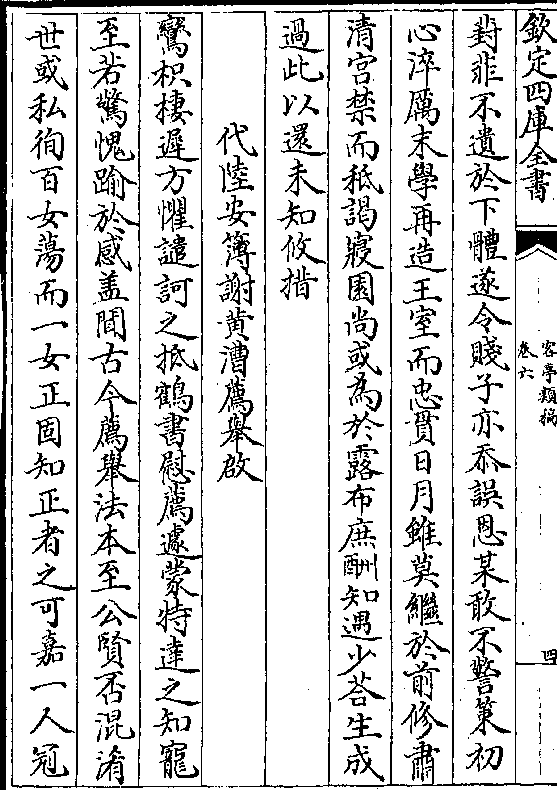 欽定四庫全書
客亭類稿
卷六
四
葑菲不遺於下體遂令賤子亦忝誤恩某敢不警策初
心淬厲末學再造王室而忠貫日月雖莫繼於前修肅
清宮禁而秪謁寢園尚或為於露布庶酬知遇少荅生成
過此以還未知攸措
代陸安簿謝黄漕薦舉啟
鸞枳棲遲方懼譴訶之抵鶚書慰薦遽蒙特達之知寵
至若驚愧踰於感盖聞古今薦舉法本至公賢否混淆
世或私徇百女蕩而一女正固知正者之可嘉一人冠